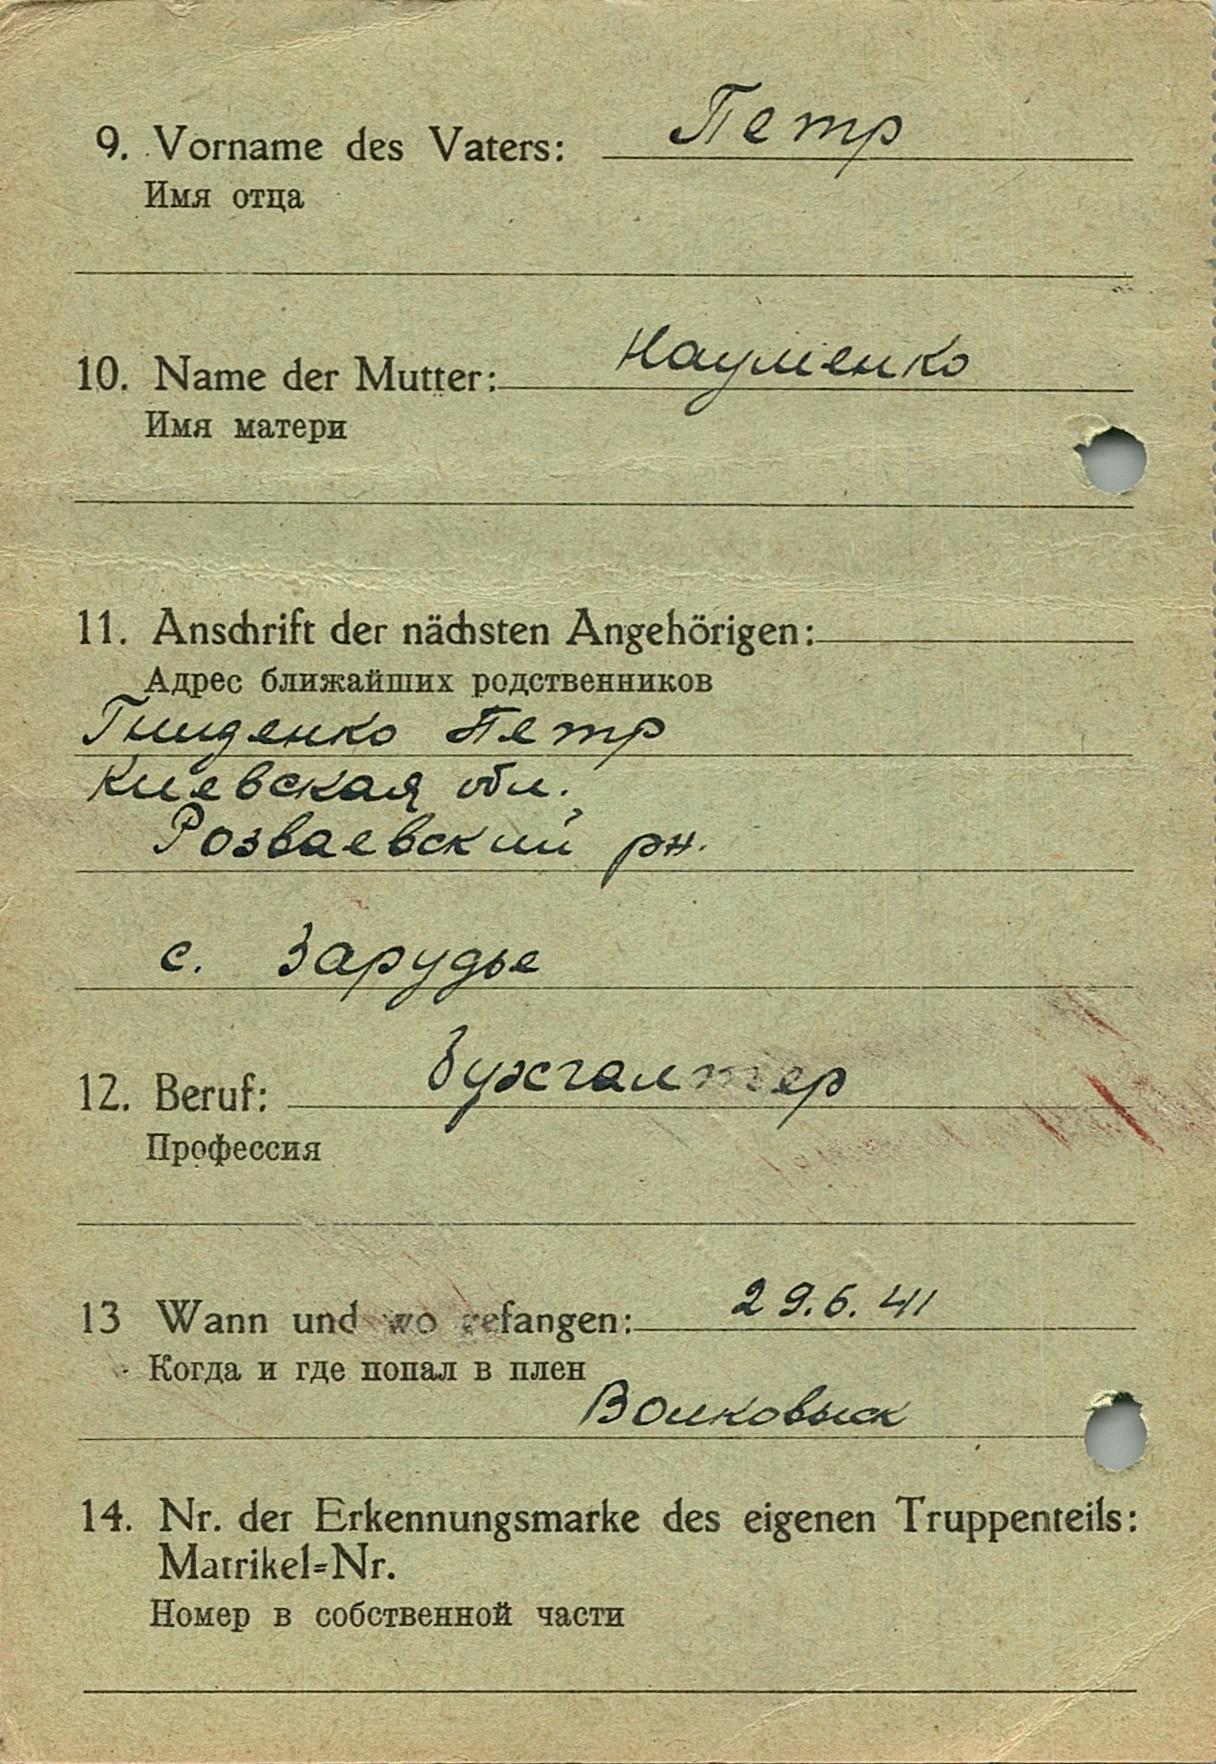 9. Vorname des Vaters: Петр
Имя отца
10. Name der Mutter: Науменко
Имя матери
11. Anschrift der nächsten Angehörigen:
Адрес ближайших родственников
Гниденко Петр
Киевская обл.
Розваевский рн.
с. Зарудье
12. Beruf: Бухгалтер
Профессия
13 Wann und wo gefangen: 29.6.41
Когда и где попал в плен
Волковыск
14. Nr. der Erkennungsmarke des eigenen Truppenteils:
Matrikel=Nr.
Номер в собственной части